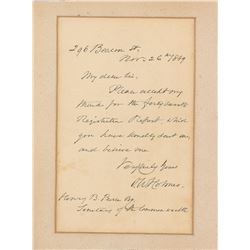 296 Beacon St.
Nov. 26th 1889
My dear Sir,
Please accept my
thanks for the forty
Registration Report, which
you have kindly sent me,
and believe me
Very truly Yours
O W Holmes.
Henry B. Peirce Esq.
Secretary of the Commonwealth